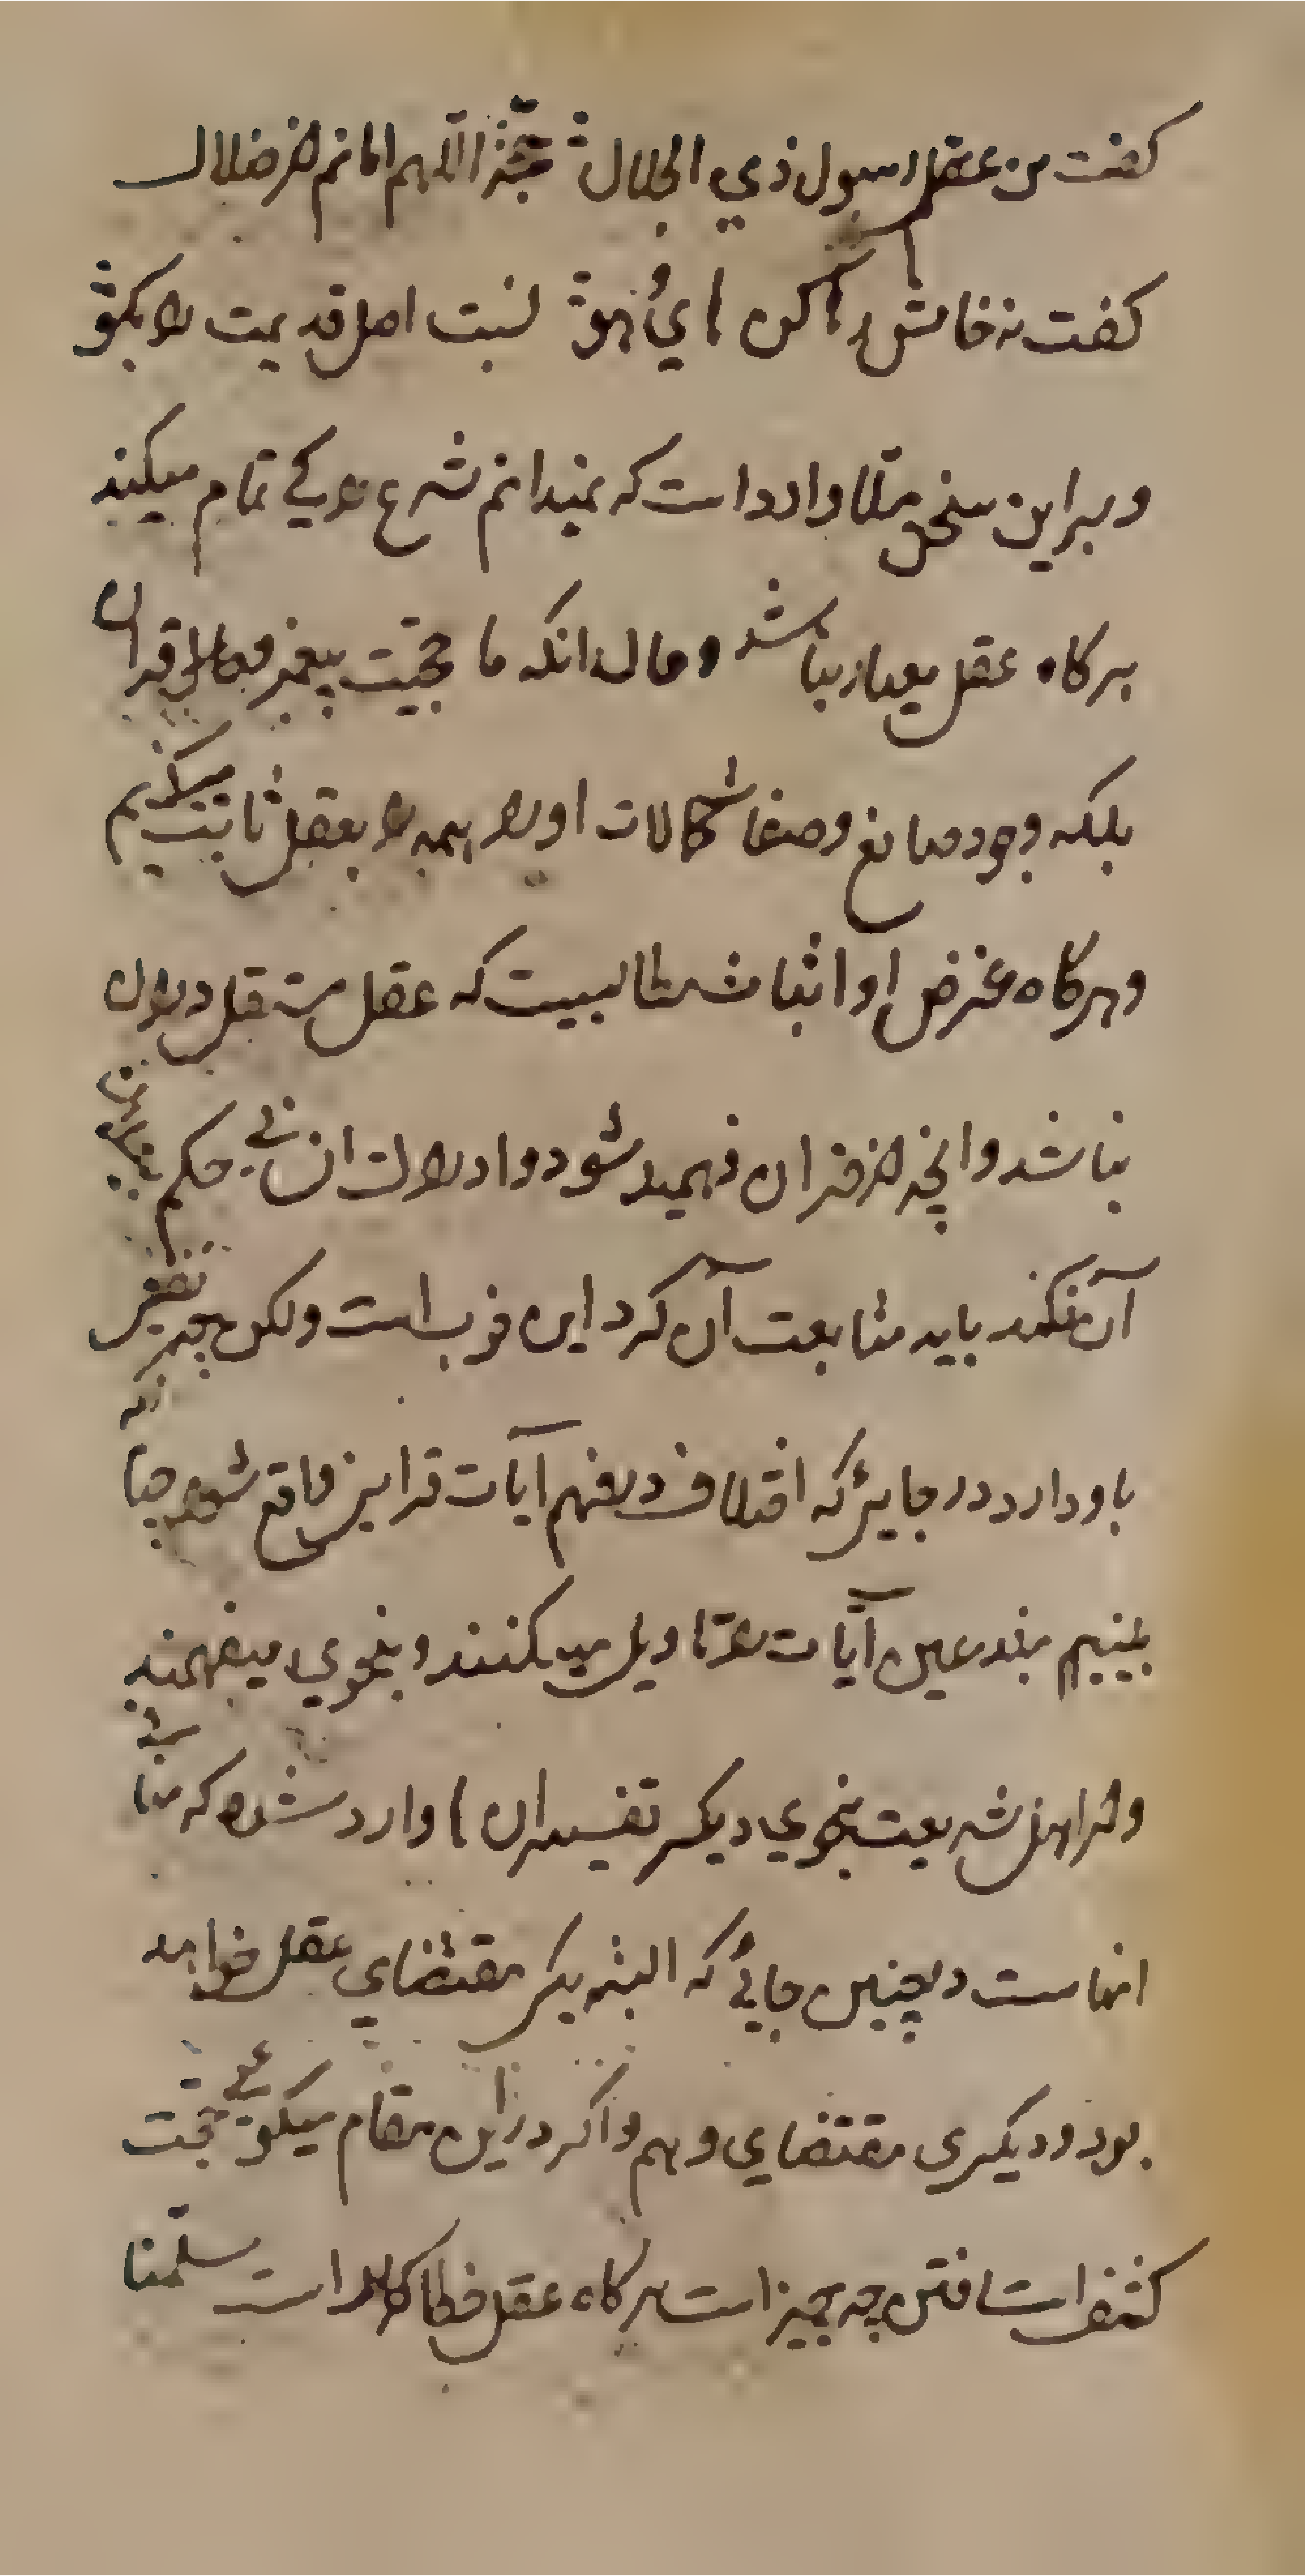 گفت من عقلم رسول ذي الجلال حجة اللهم امانم از ضلال
گفت نه خامش رها کن هاي هو نسبت اصل قدیمت را بگو
و بر این سخن مثلا وارد است که نمیدانم شرع را بکی تمام میکنید
هر کاه عقل معیار نباشد و حال انکه ما حجیت پیغمبر و قران
بلکه وجود صانع و صفات کمالات او را همه را بعقل ثابت میکنیم
و هر کاه غرض او اثبات مطالبیست که عقل مستقل در ان
نباشد و انچه از قران فهمیده شود و ادراک ان حکم
آن نکند باید متابعت آن کرد این خوب است ولکن چه
با و دارد در جایی که اختلاف در فهم آیات قرانی واقع شود چنانکه
میبینیم مبتدعین آیات را تاویل میکنند و بنحوي میفهمند
و از اهل شریعت بنحوي دیکر تفسیر ان ها وارد شده که منافی
انهاست در چنین جائي که البته یکی مقتضاي عقل خواهد
بود و دیکري مقتضاي وهم و اکر در این مقام میکوئی حجت
کشف است فتن چه چیز است هر کاه عقل خطاکار است سلمنا